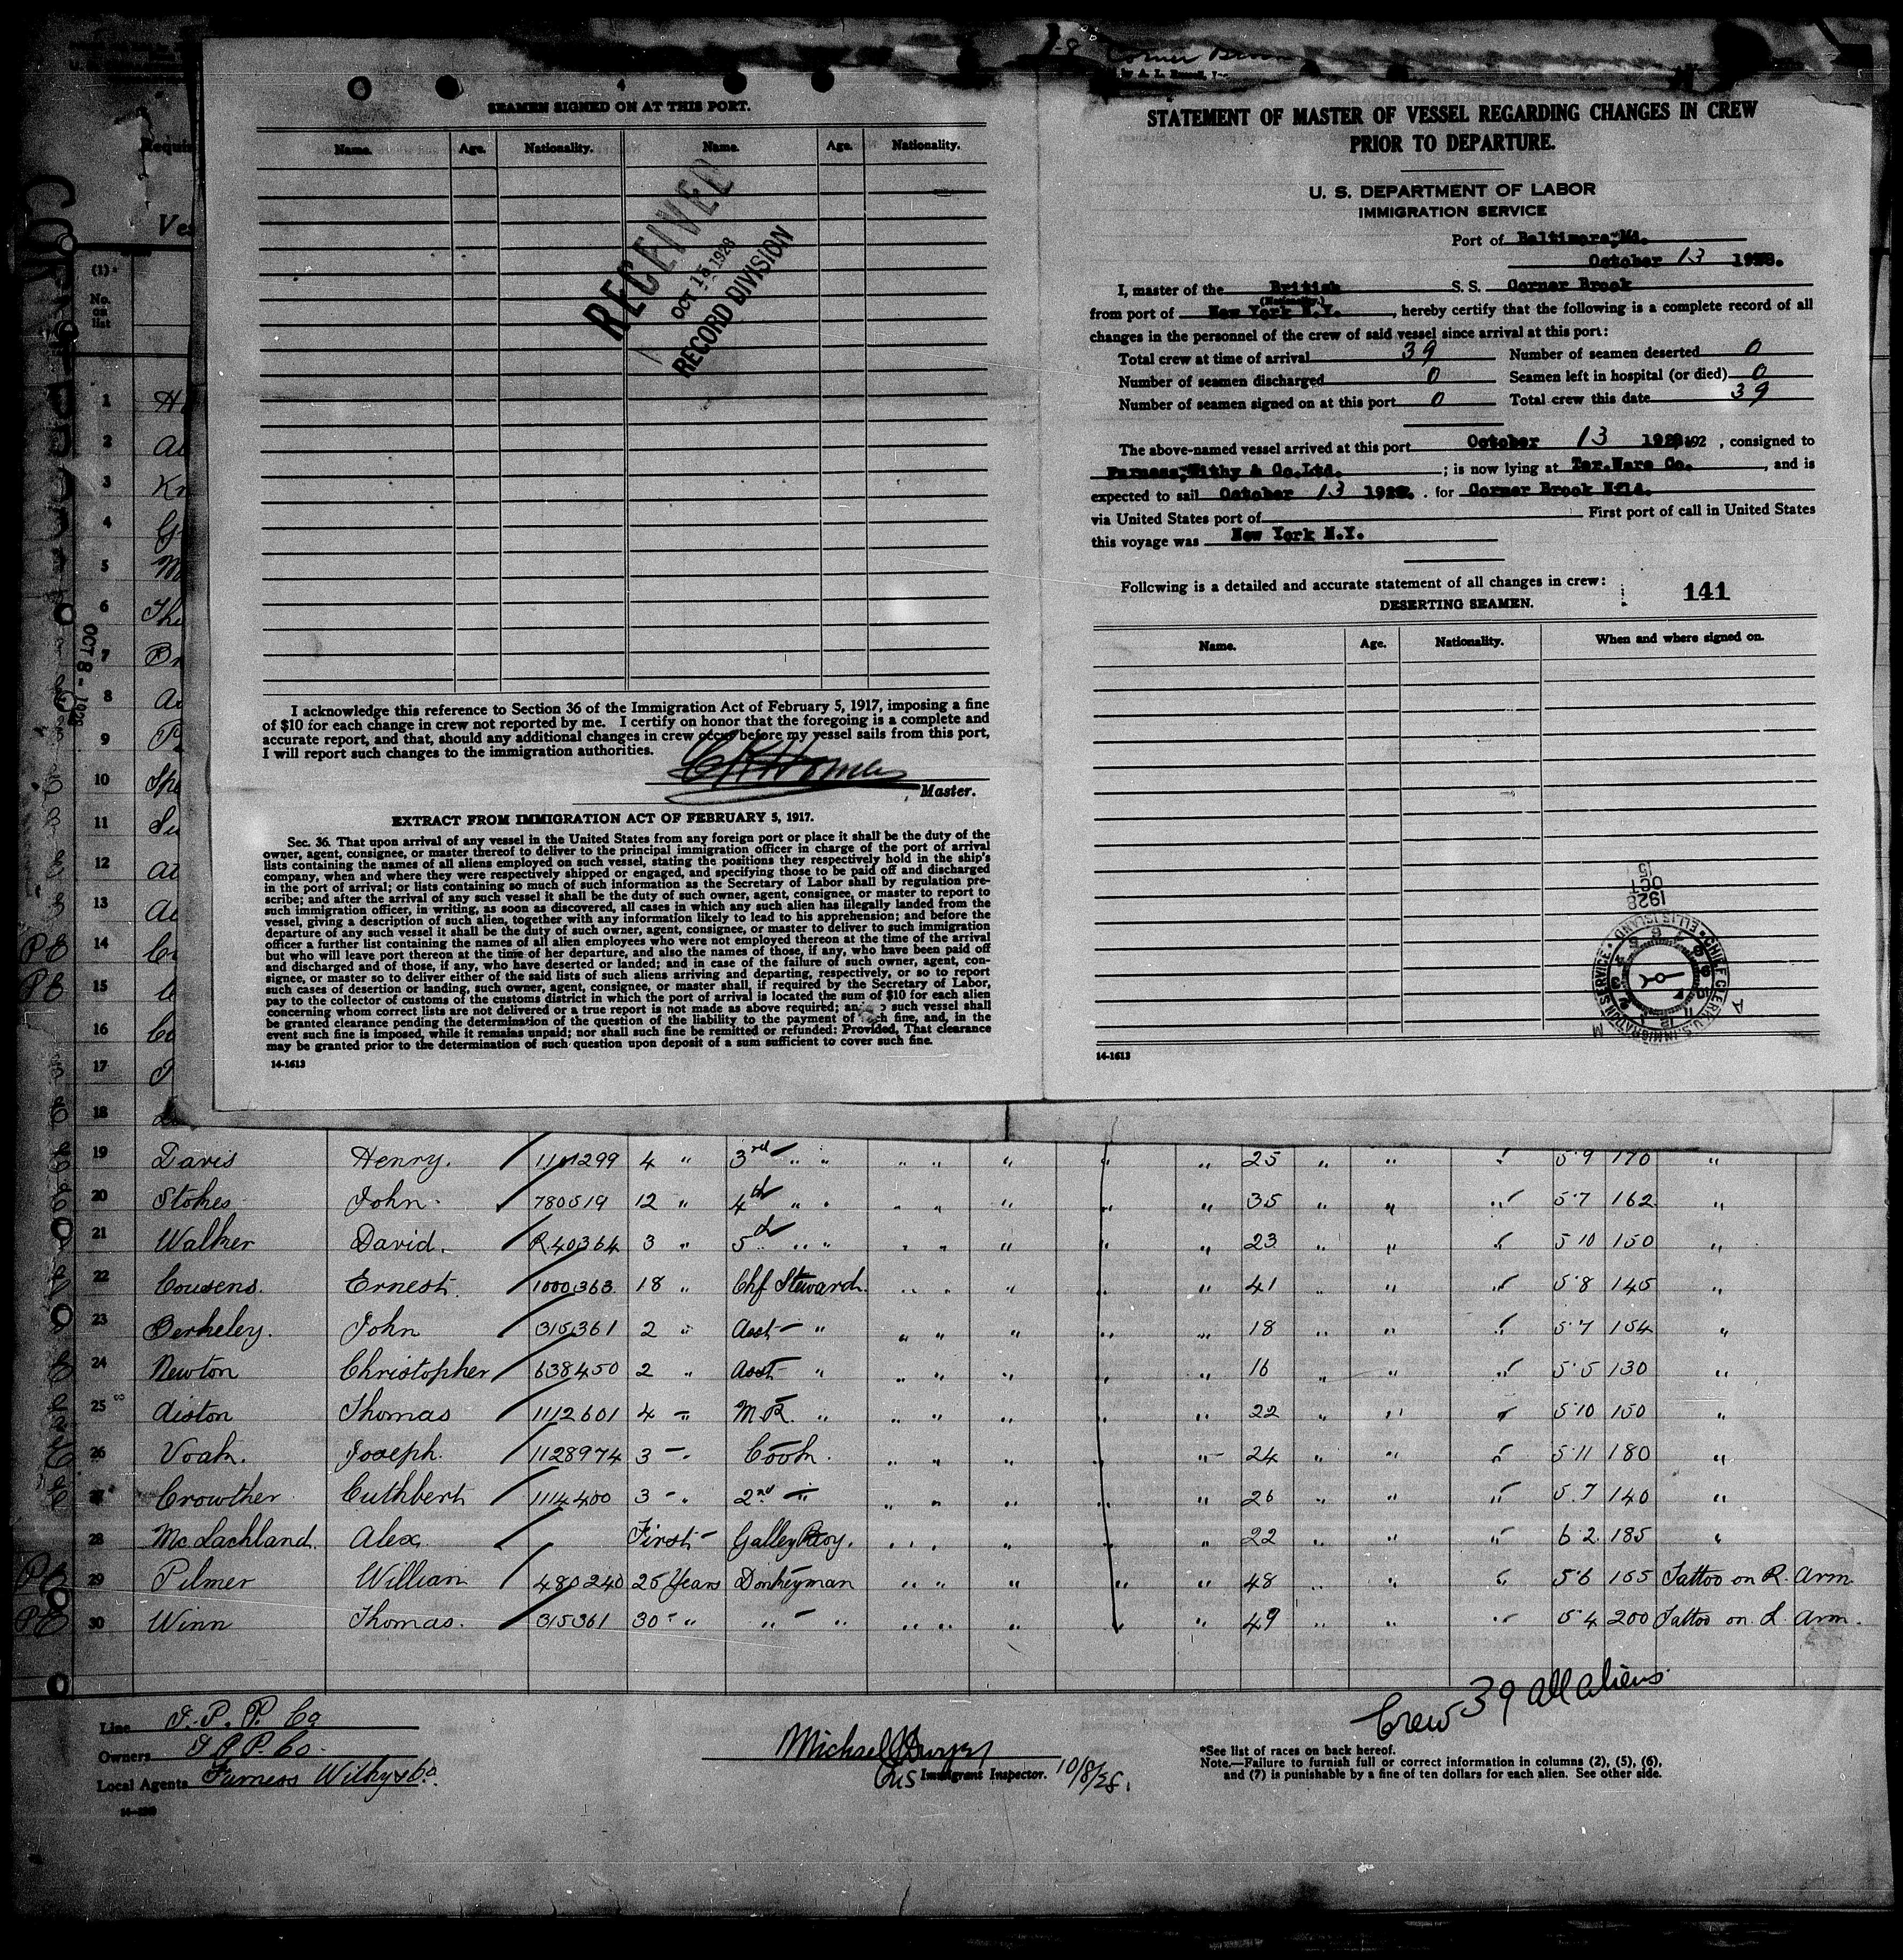 SEAMEN SIGNED ON AT THIS PORT.
Name. Age. Nationality. Name. Age. Nationality.
RECEIVED
OCT 15 1928
RECORD DIVISION
I acknowledge this reference to Section 36 of the Immigration Act of February 5, 1917, imposing a fine
of $10 for each change in crew not reported by me. I certify on honor that the foregoing is a complete and
accurate report, and that, should any additional changes in crew occur before my vessel sails from this port,
I will report such changes to the immigration authorities.
Master.
EXTRACT FROM IMMIGRATION ACT OF FEBRUARY 5, 1917.
Sec. 36. That upon arrival of any vessel in the United States from any foreign port or place it shall be the duty of the
owner, agent, consignee, or master thereof to deliver to the principal immigration officer in charge of the port of arrival
lists containing the names of all aliens employed on such vessel, stating the positions they respectively hold in the ship's
company, when and where they were respectively shipped or engaged, and specifying those to be paid off and discharged
in the port of arrival; or lists containing so much of such information as the Secretary of Labor shall by regulation pre-
scribe; and after the arrival of any such vessel it shall be the duty of such owner, agent, consignee, or master to report to
such immigration officer, in writing, as soon as discovered, all cases in which any such alien has illegally landed from the
vessel, giving a description of such alien, together with any information likely to lead to his apprehension; and before the
departure of any such vessel it shall be the duty of such owner, agent, consignee, or master to deliver to such immigration
officer a further list containing the names of all alien employees who were not employed thereon at the time of the arrival
but who will leave port thereon at the time of her departure, and also the names of those, if any, who have been paid off
and discharged and of those, if any, who have deserted or landed; and in case of the failure of such owner, agent, con-
signee, or master so to deliver either of the said lists of such aliens arriving and departing, respectively, or so to report
such cases of desertion or landing, such owner, agent, consignee, or master shall, if required by the Secretary of Labor,
pay to the collector of customs of the customs district in which the port of arrival is located the sum of $10 for each alien
concerning whom correct lists are not delivered or a true report is not made as above required; and no such vessel shall
be granted clearance pending the determination of the question of the liability to the payment of such fine, and, in the
event such fine is imposed, while it remains unpaid; nor shall such fine be remitted or refunded: Provided, That clearance
may be granted prior to the determination of such question upon deposit of a sum sufficient to cover such fine.
14-1613
Corner Brook
STATEMENT OF MASTER OF VESSEL REGARDING CHANGES IN CREW
PRIOR TO DEPARTURE.
U. S. DEPARTMENT OF LABOR
IMMIGRATION SERVICE
Port of Baltimore, Md.
October 13 1928.
I, master of the British S. S. Corner Brook
(Nationality.)
from port of New York N.Y., hereby certify that the following is a complete record of all
changes in the personnel of the crew of said vessel since arrival at this port:
Total crew at time of arrival 39 Number of seamen deserted 0
Number of seamen discharged 0 Seamen left in hospital (or died) 0
Number of seamen signed on at this port 0 Total crew this date 39
The above-named vessel arrived at this port October 13 1928 192 , consigned to
Furness, Withy & Co.Ltd. ; is now lying at Ter.Ware Co. , and is
expected to sail October 13 1928. . for Corner Brook Nfld.
via United States port of First port of call in United States
this voyage was New York N.Y.
Following is a detailed and accurate statement of all changes in crew:
141
DESERTING SEAMEN.
Name. Age. Nationality. When and where signed on.
1928
OCT
15
CHIEF CLERK U.S. IMMIGRATION SERVICE ELLIS ISLAND
14-1613
(1)
No.
on
list
OCT 8 - 1928
1
2
3
4
5
6
7
8
9
10
11
12
13
14
15
16
17
18
19 Davis Henry. 1101299 4 " 3rd " " " " " " " 25 " " " 5.9 170 "
20 Stokes John. 780519 12 " 4th " " " " " " " 35 " " " 5.7 162 "
21 Walker David. R.40364 3 " 5th " " " " " " " 23 " " " 5 10 150 "
22 Cousens. Ernest. 1000363 18 " Chf Steward. " " " " " 41 " " " 5.8 145 "
23 Berkeley. John 315361 2 " Asst " " " " " " 18 " " " 5.7 154 "
24 Newton Christopher 638450 2 " Asst " " " " " 16 " " " 5.5 130 "
25 Aiston Thomas 1112601 4 " M.R. " " " " " " 22 " " " 5.10 150 "
26 Voak. Joseph. 1128974 3 " Cook. " " " " " 24 " " " 5.11 180 "
27 Crowther Cuthbert 1114400 3 " 2nd " " " " " " 26 " " " 5.7 140 "
28 McLachland. Alex. First Galley Boy. " " " " " 22 " " " 6 2. 185 "
29 Pilmer William 480240 25 Years Donkeyman " " " " " 48 " " " 5.6 165 Tattoo on R. Arm
30 Winn Thomas. 315361 30 " " " " " " " " 49 " " " 5.4 200 Tattoo on L. Arm.
Crew 39 all aliens
Line I. P. P. Co
Owners I P P. Co.
Local Agents Furness Withy & Co.
Immigrant Inspector. 10/8/28.
*See list of races on back hereof.
Note.—Failure to furnish full or correct information in columns (2), (5), (6),
and (7) is punishable by a fine of ten dollars for each alien. See other side.